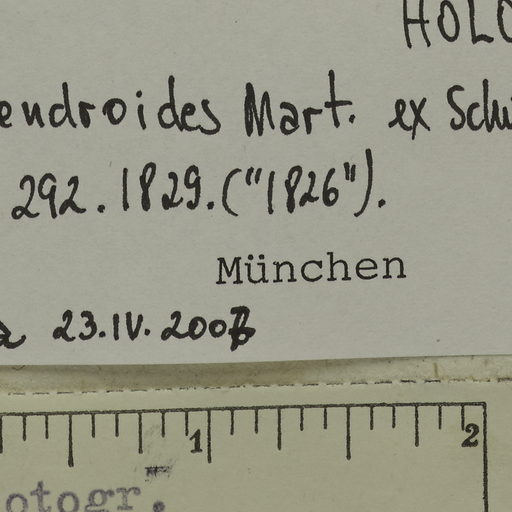 HOLO
endroides Mart. ex Sch
292. 1829. ("1826").
München
23.IV.2007
1 2
otogr.